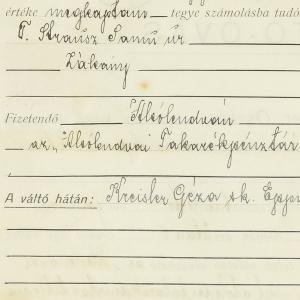 értéke megkaptam tegye számolásba tudó
T. Strausz Samu úr
Zákány
Fizetendő Alsólendván
az „Alsólendvai Takarékpénztár
A váltó hátán: Kreisler Géza sk. Eppi